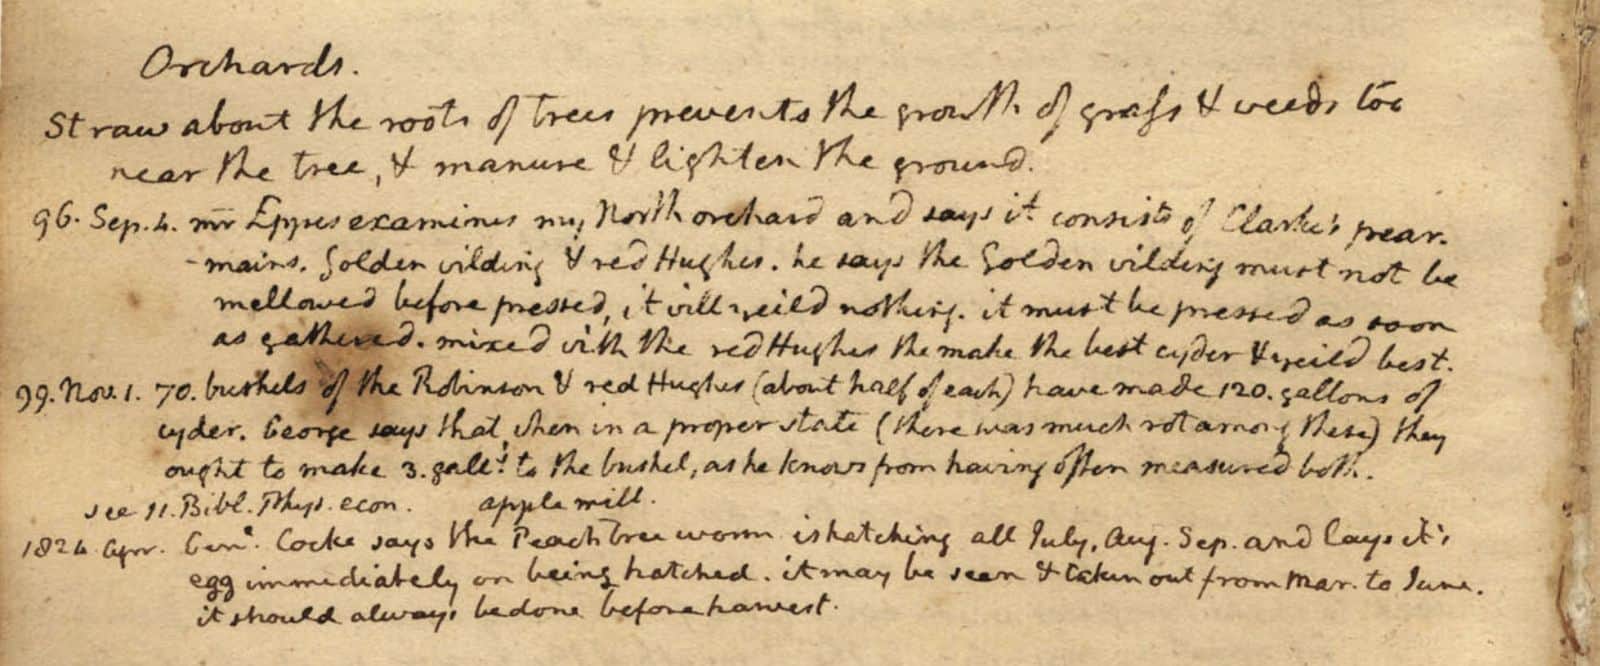 Orchards.
Straw about the roots of trees prevents the growth of grass & weeds too
near the tree, & manure & lighten the ground.
96. Sep. 4. mr Eppes examines my North orchard and says it consists of Clarke's pear-
-mains. Golden wilding & red Hughes. he says the Golden wilding must not be
mellowed before pressed, it will yeild nothing. it must be pressed as soon
as gathered. mixed with the red Hughes the make the best cyder & yeild best.
99. Nov. 1. 70. bushels of the Robinson & red Hughes (about half of each) have made 120. gallons of
cyder. George says that when in a proper state (there was much rot among these) they
ought to make 3. gall.s to the bushel, as he knows from having often measured both.
see 11. Bibl. Phys. econ. apple mill.
1824 Apr. Genl. Cocke says the Peach tree worm is hatching all July, Aug. Sep. and lays it's
egg immediately on being hatched. it may be seen & taken out from Mar. to June.
it should always be done before harvest.